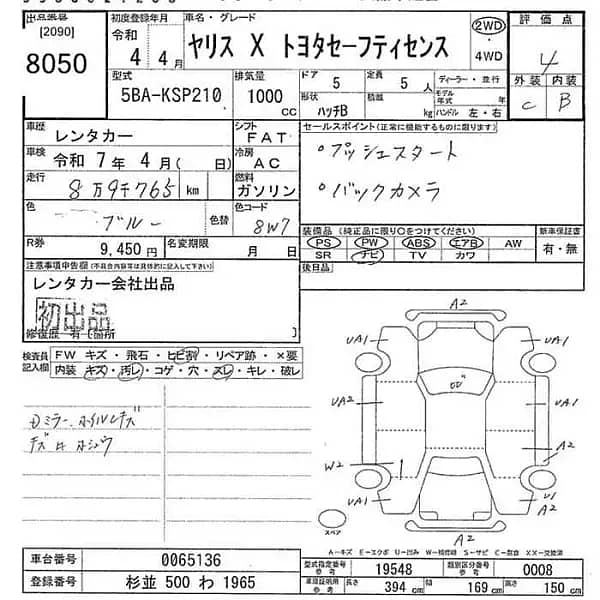 出品番号
[2090]
8050
初度登録年月
令和
4年4月
車名・グレード
ヤリス X トヨタセーフティセンス
2WD
・
4WD
評価点
4
外装 内装
C B
型式
5BA-KSP210
排気量
1000
CC
ドア 5
形状 ハッチB
定員 5 人
積載 kg
ディーラー・並行
モデル年式 年
ハンドル 左・右
車歴 レンタカー
シフト FAT
車検 令和 7年 4月( 日)
冷房 AC
走行 8万9千765 km
燃料 ガソリン
色 ブルー
色替
色コード 8W7
R券 9,450円
名変期限 月 日
セールスポイント(正常に機能するものに限ります)
・プッシュスタート
・バックカメラ
装備品(純正品に限り○をつけてください)
PS PW ABS エアB AW
SR ナビ TV カワ
新車保証書
有・無
後日品
注意事項申告欄(不具合内容等は具体的に記入して下さい)
レンタカー会社出品
初出品
修復歴 有(箇所
検査員記入欄
FW キズ・飛石・ヒビ割・リペア跡・×要
内装 キズ・汚レ・コゲ・穴・スレ・キレ・破レ
A2
UA1
UA1
UA2
UA1
W2
A2
UA1
U1
A2
A2
スペア
A-キズ E-エクボ U-凹み W-補修跡 S-サビ C-腐食 XX-交換済
車台番号 0065136
登録番号 杉並 500 わ 1965
型式指定番号 参考 19548
類別区分番号 参考 0008
車両証明用 参考 長さ 394 cm 幅 169 cm 高さ 150 cm